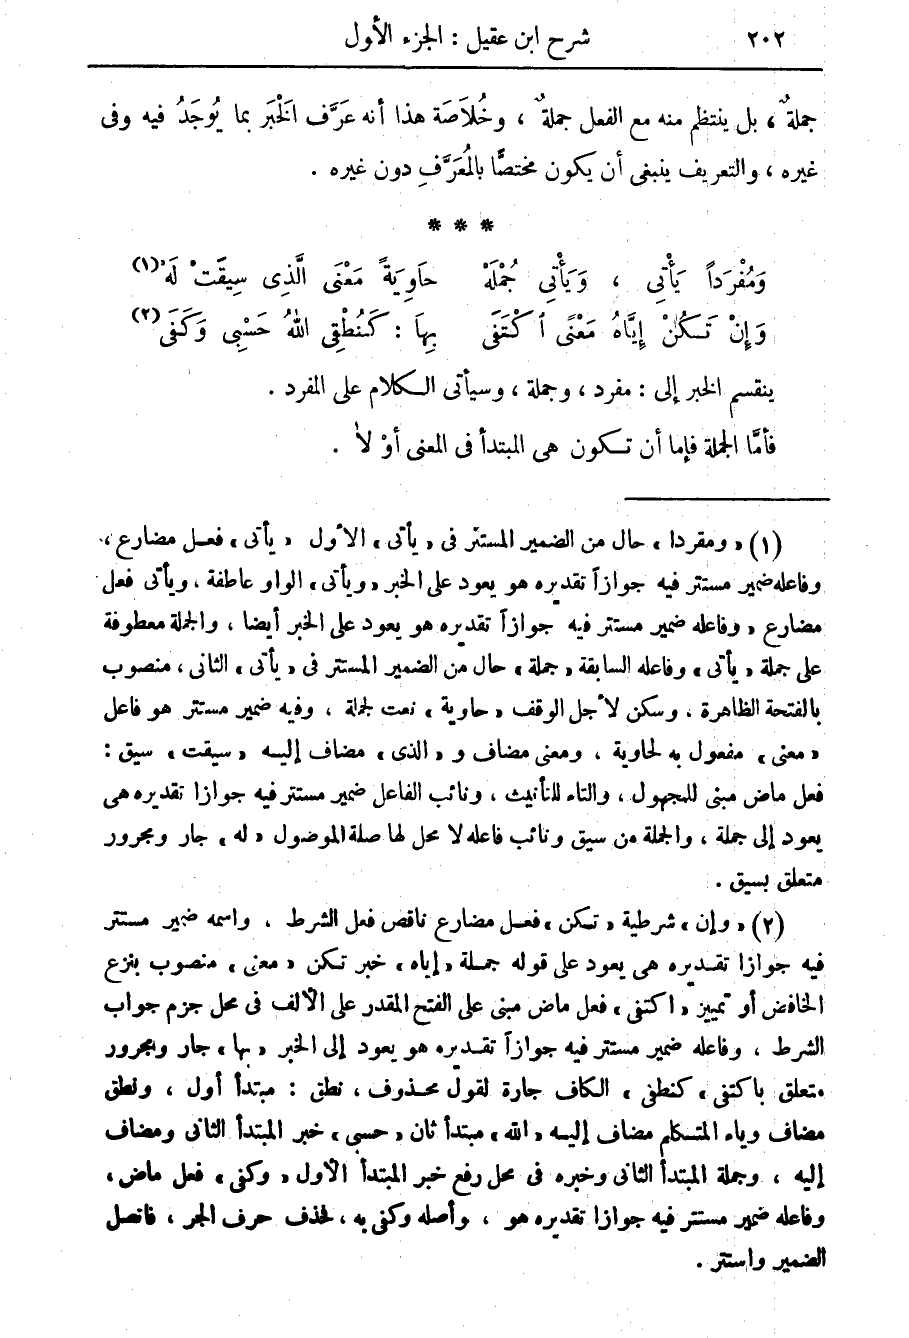 ٢٠٢ شرح ابن عقيل : الجزء الأول
جملةٌ ، بل ينتظم منه مع الفعل جملةٌ ، وخُلاَصَة هذا أنه عَرَّف الْخَبَر بما يُوجَدُ فيه وفى
غيره ، والتعريف ينبغى أن يكون مختصًّا بالمُعَرَّفِ دون غيره .
* * *
وَمُفْرَداً يَأْتِي ، وَيَأْتِي جُمْلَهْ حَاوِيَةً مَعْنَى الَّذِى سِيقَتْ لَهْ (١)
وَإِنْ تَكُنْ إِيَّاهُ مَعْنًى اكْتَفَى بِهَا : كَنُطْقِى اللهُ حَسْبِى وَكَفَى (٢)
ينقسم الخبر إلى : مفرد ، وجملة ، وسيأتى الكلام على المفرد .
فأمَّا الجملة فإما أن تكون هى المبتدأ فى المعنى أوْ لاَ .
(١) « ومفردا » حال من الضمير المستتر فى « يأتى » الأول « يأتى » فعل مضارع ،
وفاعله ضمير مستتر فيه جوازاً تقديره هو يعود على الخبر « ويأتى » الواو عاطفة ، ويأتى فعل
مضارع « وفاعله ضمير مستتر فيه جوازاً تقديره هو يعود على الخبر أيضا ، والجملة معطوفة
على جملة « يأتى » وفاعله السابقة « جملة » حال من الضمير المستتر فى « يأتى » الثانى ، منصوب
بالفتحة الظاهرة ، وسكن لأجل الوقف « حاوية » نعت لجملة ، وفيه ضمير مستتر هو فاعل
« معنى » مفعول به لحاوية ، ومعنى مضاف و « الذى » مضاف إليه « سيقت » سيق :
فعل ماض مبنى للمجهول ، والتاء للتأنيث ، ونائب الفاعل ضمير مستتر فيه جوازا تقديره هى
يعود إلى جملة ، والجملة من سيق ونائب فاعله لا محل لها صلة الموصول « له » جار ومجرور
متعلق بسيق .
(٢) « وإن » شرطية « تكن » فعل مضارع ناقص فعل الشرط ، واسمه ضمير مستتر
فيه جوازا تقديره هى يعود على قوله جملة « إياه » خبر تكن « معنى » منصوب بنزع
الخافض أو تمييز « اكتفى » فعل ماض مبنى على الفتح المقدر على الألف فى محل جزم جواب
الشرط ، وفاعله ضمير مستتر فيه جوازاً تقديره هو يعود إلى الخبر « بها » جار ومجرور
متعلق باكتفى « كنطقى » الكاف جارة لقول محذوف ، نطق : مبتدأ أول ، ونطق
مضاف وياء المتكلم مضاف إليه « الله » مبتدأ ثان « حسبى » خبر المبتدأ الثانى ومضاف
إليه ، وجملة المبتدأ الثانى وخبره فى محل رفع خبر المبتدأ الأول « وكفى » فعل ماض ،
وفاعله ضمير مستتر فيه جوازا تقديره هو ، وأصله وكفى به ، فحذف حرف الجر ، فاتصل
الضمير واستتر .